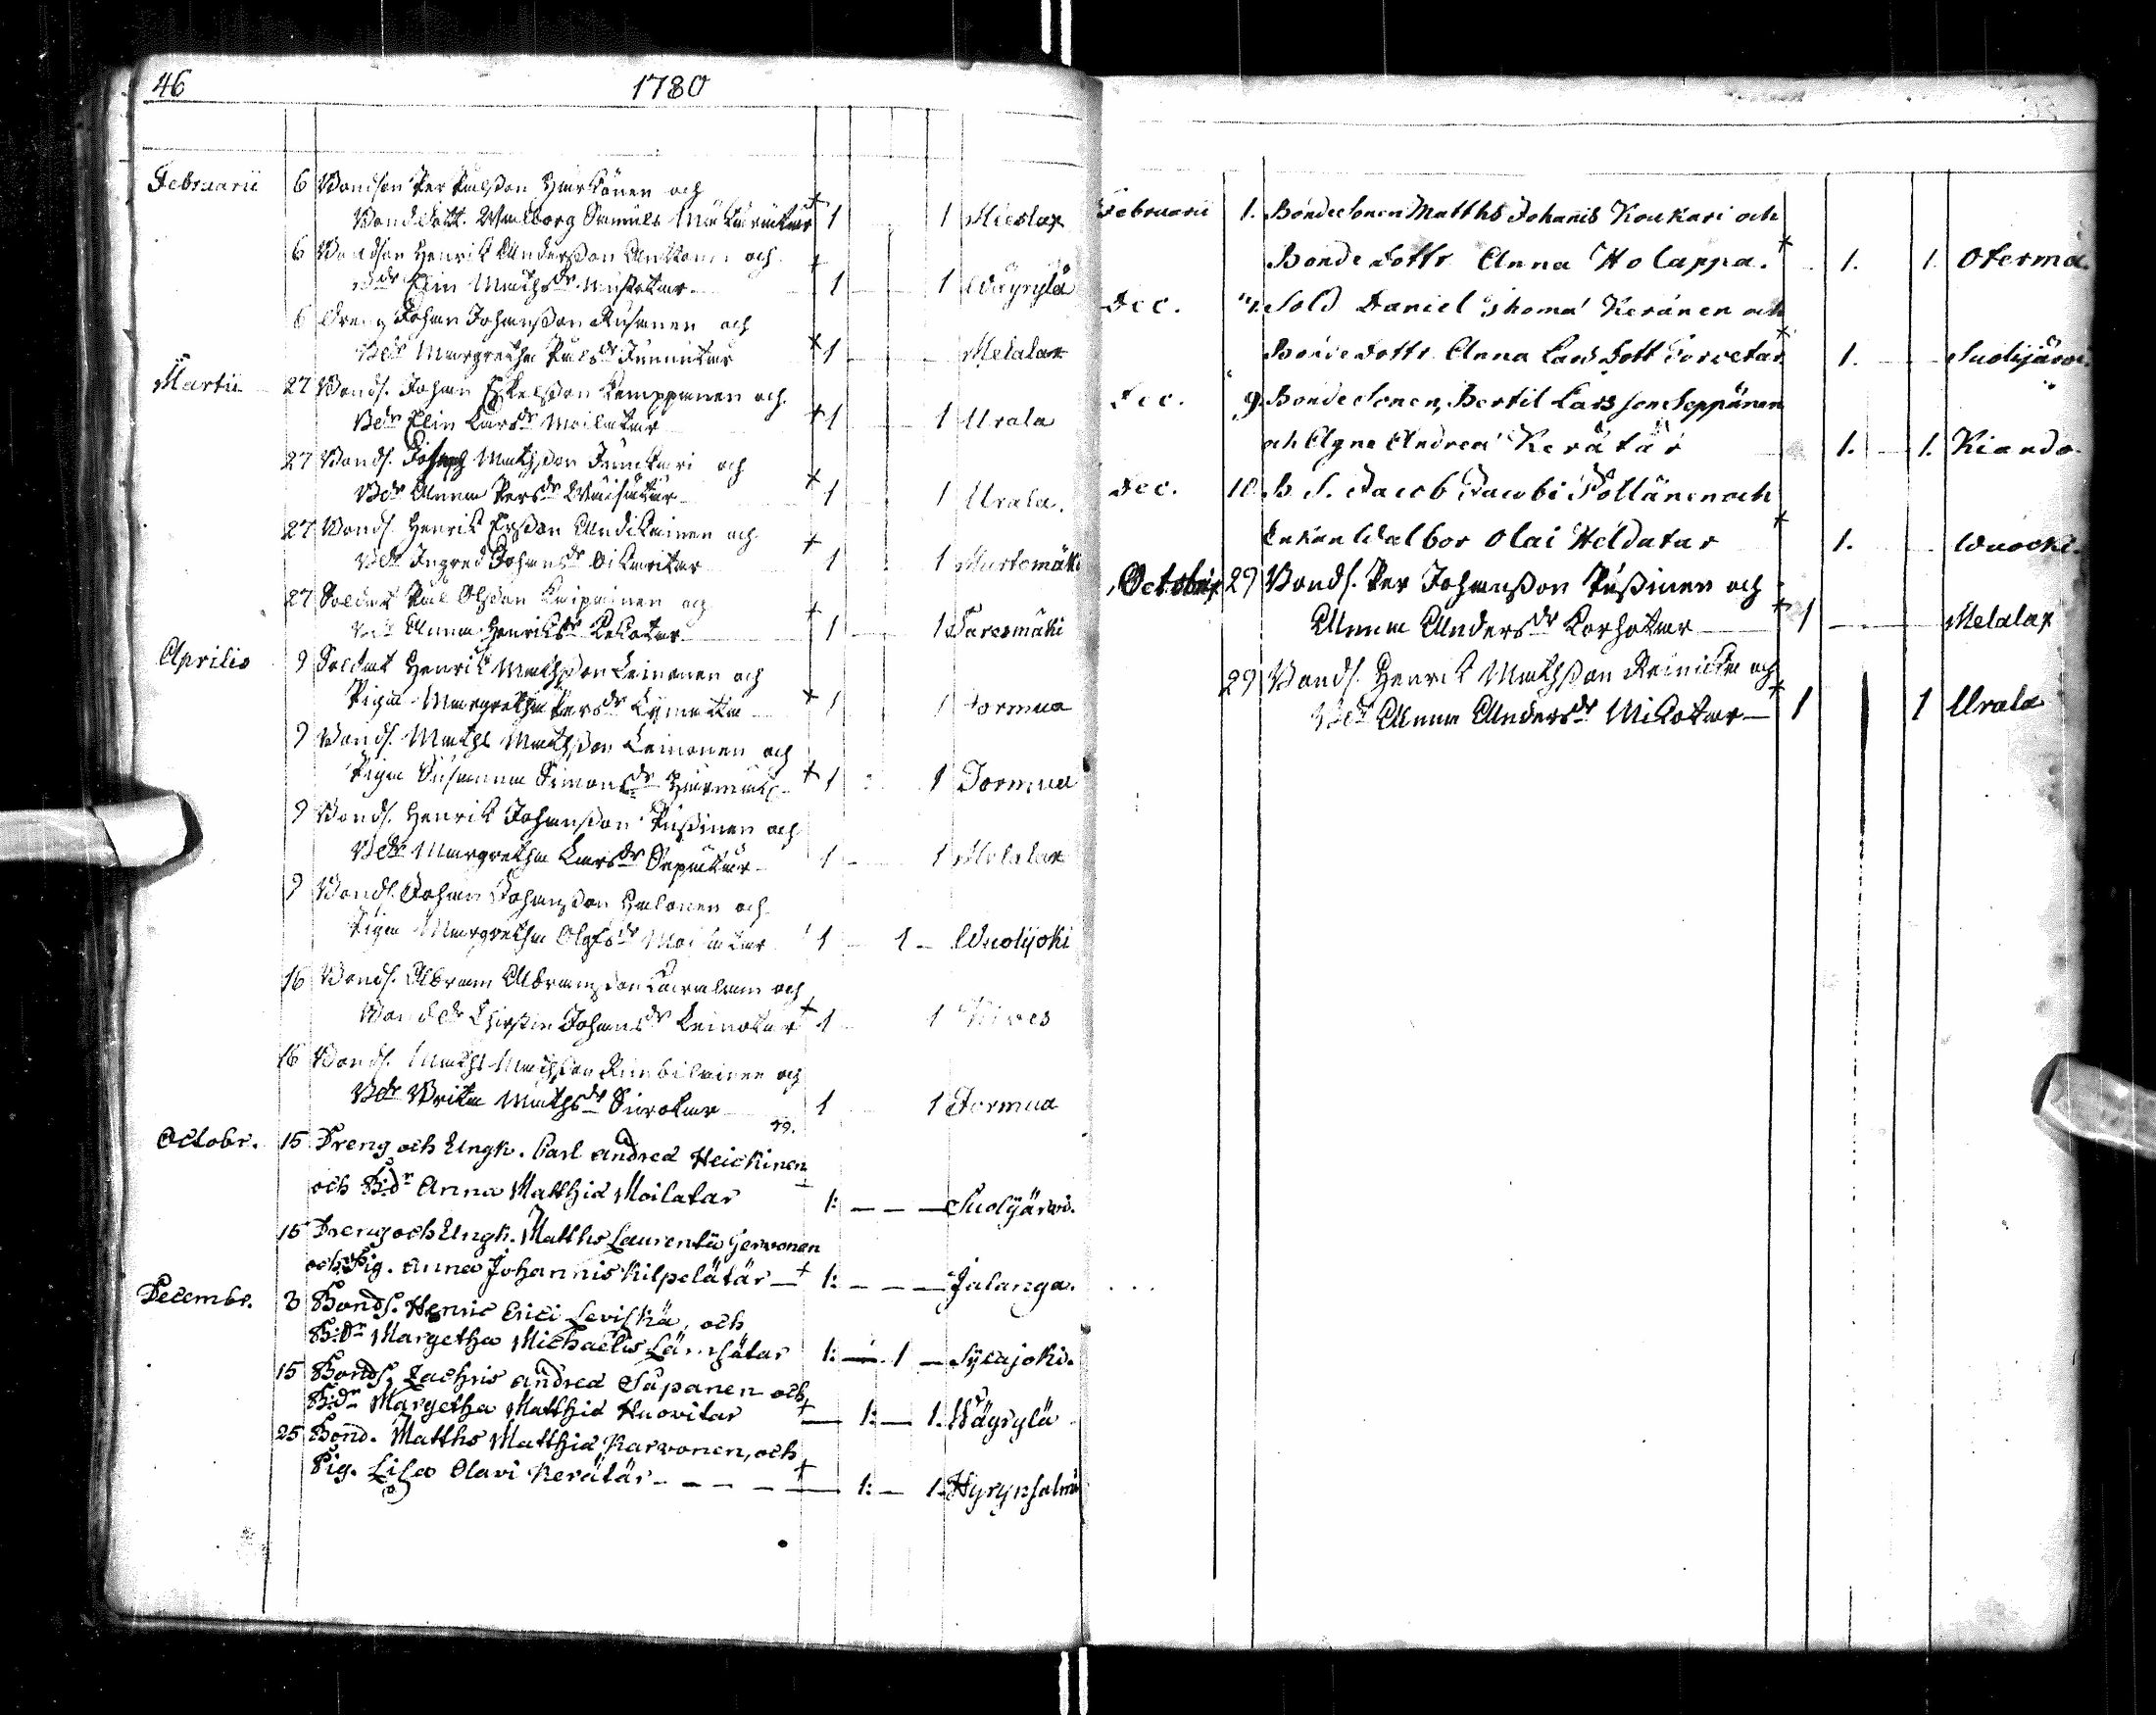 46 1780
Februarii 6 Bondson Per Pålsson Härkönen och
Bonddott. Walborg Samuels 1 1 Mieslax
6 Bondson Henrik Andersson och
Elin Mathsdr Mustatar 1 1 Wäyrylä
6 Dreng Johan Johansson Rusanen och
Bdr Margretha Pålsdr Juunitar 1 Melalax
Martii 27 Bonds. Johan Eskelsson Kemppanen och
Bdr Elin Larsdr Moilatar 1 1 Urala
27 Bonds. Joseph Mathsson Junckari och
Bdr Anna Persdr Wäisätär 1 1 Urala.
27 Bonds. Henrik Ersson Andikainen och
Bdr Ingred Johansdr Oikaritar 1 1 Murtomäki
27 Soldat Pål Olsson Kaipainen och
Anna Henriksdr Kekotar 1 1 Saresmäki
Aprilis 9 Soldat Henrik Mathsson Leinonen och
Pigan Margretha Persdr 1 1 Jormua
9 Bonds. Maths Mathsson Leinonen och
Pigan Susanna Simonsdr 1 1 Jormua
9 Bonds. Henrik Johansson Pussinen och
Bdr Margretha Larsdr Sepätär 1 1 Melalax
9 Bonds. Johan Johansson Halonen och
Pigan Margretha Olofsdr Moilatar 1 1 Wuolijoki
16 Bonds. Abram Abramsson och
Bonddr Christin Johansdr Leinotar 1 1 Kives
16 Bonds. Maths Mathsson Rimbilainen och
Bdr Brita Mathsdr Surotar 1 1 Jormua
Octobr. 15 Dreng och Ungk. Carl Andreæ Heickinen
och B:dr Anna Matthiæ Moilatar 1: Suolijärvi.
15 Dreng och Ungk. Matths Laurentii Gervonen
och Pig. Anna Johannis Kilpelätär 1: Jalanga.
Decembr. 3 Bonds. Henric Erici Leviskä, och
B:dr Margetha Michaelis Lämsätar 1: 1 Sycajoki.
15 Bonds. Zachris Andreæ Säpänen och
B:dr Margetha Matthiæ Huovitar 1: 1. Wäyrylä
25 Bond. Matths Matthiæ Karvonen, och
Pig. Lisa Olavi Kerätär 1: 1. Hyrynsalmi
Februarii 1. Bondesonen Matths Johanis Koukari och
Bonde dottr Anna Holappa. 1. 1. Oterma.
Dec. Sold Daniel Thomæ Keränen och
Bonde dottr Anna Lars dott Torvetar 1. Suolijärvi.
Dec. 9. Bondesonen, Bertil Larsson Seppänen
och Agne Andreæ Kerätär 1. 1. Kianda.
Dec. 10. B. S. Jacob Jacobi Pöllänen och
Enkan Walbor Olai Heldatar 1. Wuocki.
October 29 Bonds. Per Johansson Pussinen och
Anna Andersdr Korhotar 1 Melalax
29 Bonds. Henrik Mathsson Reinicka och
Bdr Anna Andersdr Mikotar 1 1 Urala